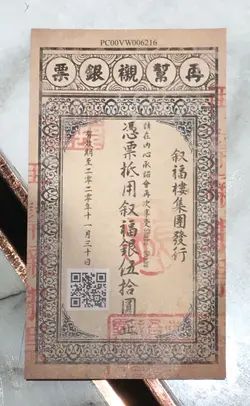 PC00VW006216
再幫襯銀票
叙福樓集團發行
請在內心承諾會再次享受
憑票抵用叙福銀伍拾圓正
有效期至二零二零年十一月三十日